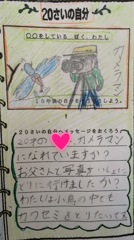 20さいの自分
○○をしている ぼく、わたし
カメラマン
10年後の自分をかいてみよう
20さいの自分へメッセージをおくろう
20才の カメラマン
になれていますか?
お父さんと写真をいっしょに
とりに行けましたか?
わたしは小鳥の中でも
カワセミをとりたいです